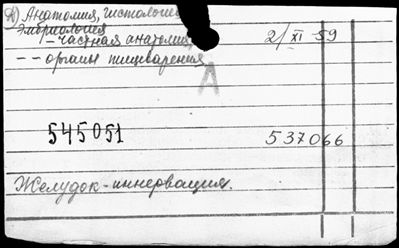 А) Анатомия, гистология
Эмбриология
– частная анатомия, 2/XI 59
– – органы пищеварения
А
545051 537066
Желудок – иннервация.